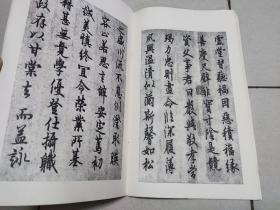 虛堂習聽禍因惡積福緣
善慶尺璧非寶寸陰是競
資父事君曰嚴與敬孝當
竭力忠則盡命臨深履薄
夙興溫凊似蘭斯馨如松
之盛川流不息淵澄取暎
容止若思言辭安定篤初
誠美慎終宜令榮業所基
籍甚無竟學優登仕攝職
從政存以甘棠去而益詠